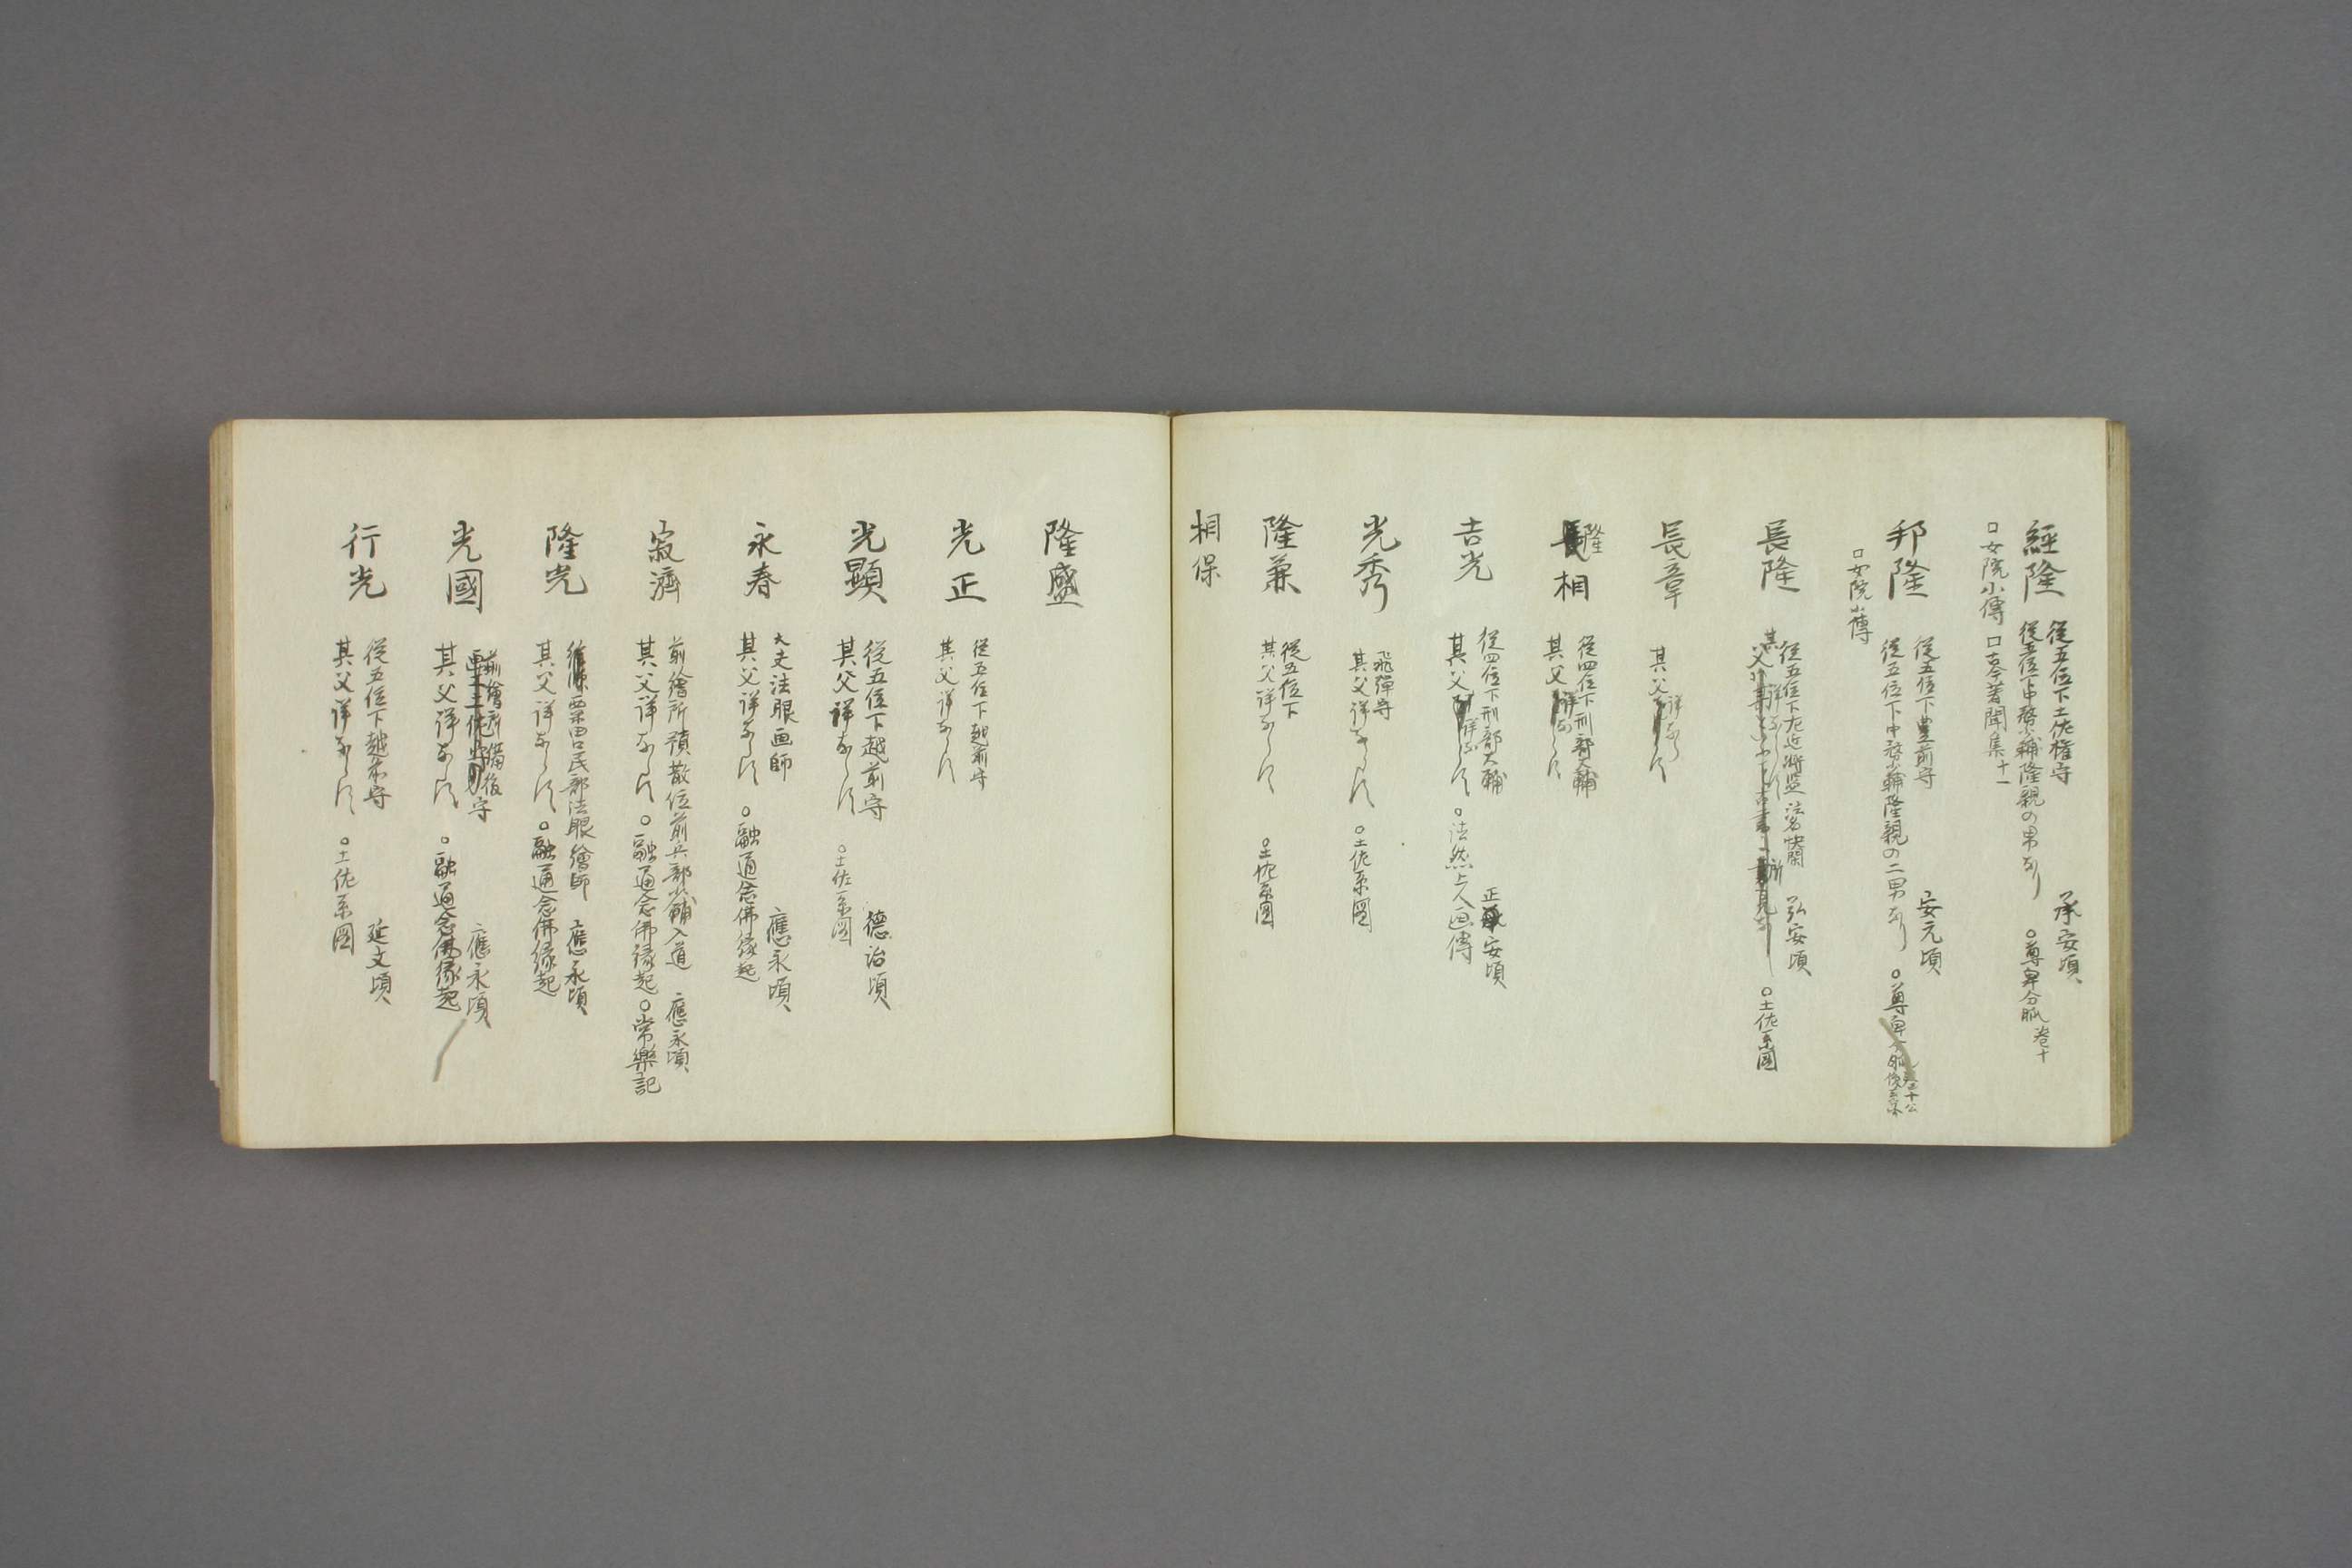 經隆
從五位下土佐權守
承安頃
從五位下中務少輔隆親の男なり
○尊卑分脈 卷十
□女院小傳 □古今著聞集十一
邦隆
從五位下豊前守
安元頃
從五位下中務少輔隆親の二男なり
○尊卑分脈
□女院小傳
長隆
從五位下左近將監 法名快閑
弘安頃
其父詳ならす
○土佐系圖
長章
其父詳ならす
隆相
從四位下刑部大輔
其父詳ならす
吉光
從四位下刑部大輔
正安頃
其父詳ならす
○法然上人画傳
光秀
飛彈守
其父詳ならす
○土佐系圖
隆兼
從五位下
其父詳ならす
○土佐系圖
相保
隆盛
光正
從五位下越前守
其父詳ならす
光顯
從五位下越前守
德治頃
其父詳ならす
○土佐系圖
永春
大夫法眼画師
應永頃
其父詳ならす
○融通念佛縁起
寂濟
前繪所預散位前兵部少輔入道
應永頃
其父詳ならす
○融通念佛縁起 ○常樂記
隆光
粟田口民部法眼繪師
應永頃
其父詳ならす
○融通念佛縁起
光國
前繪所備後守
應永頃
其父詳ならす
○融通念佛縁起
行光
從五位下越前守
延文頃
其父詳ならす
○土佐系圖